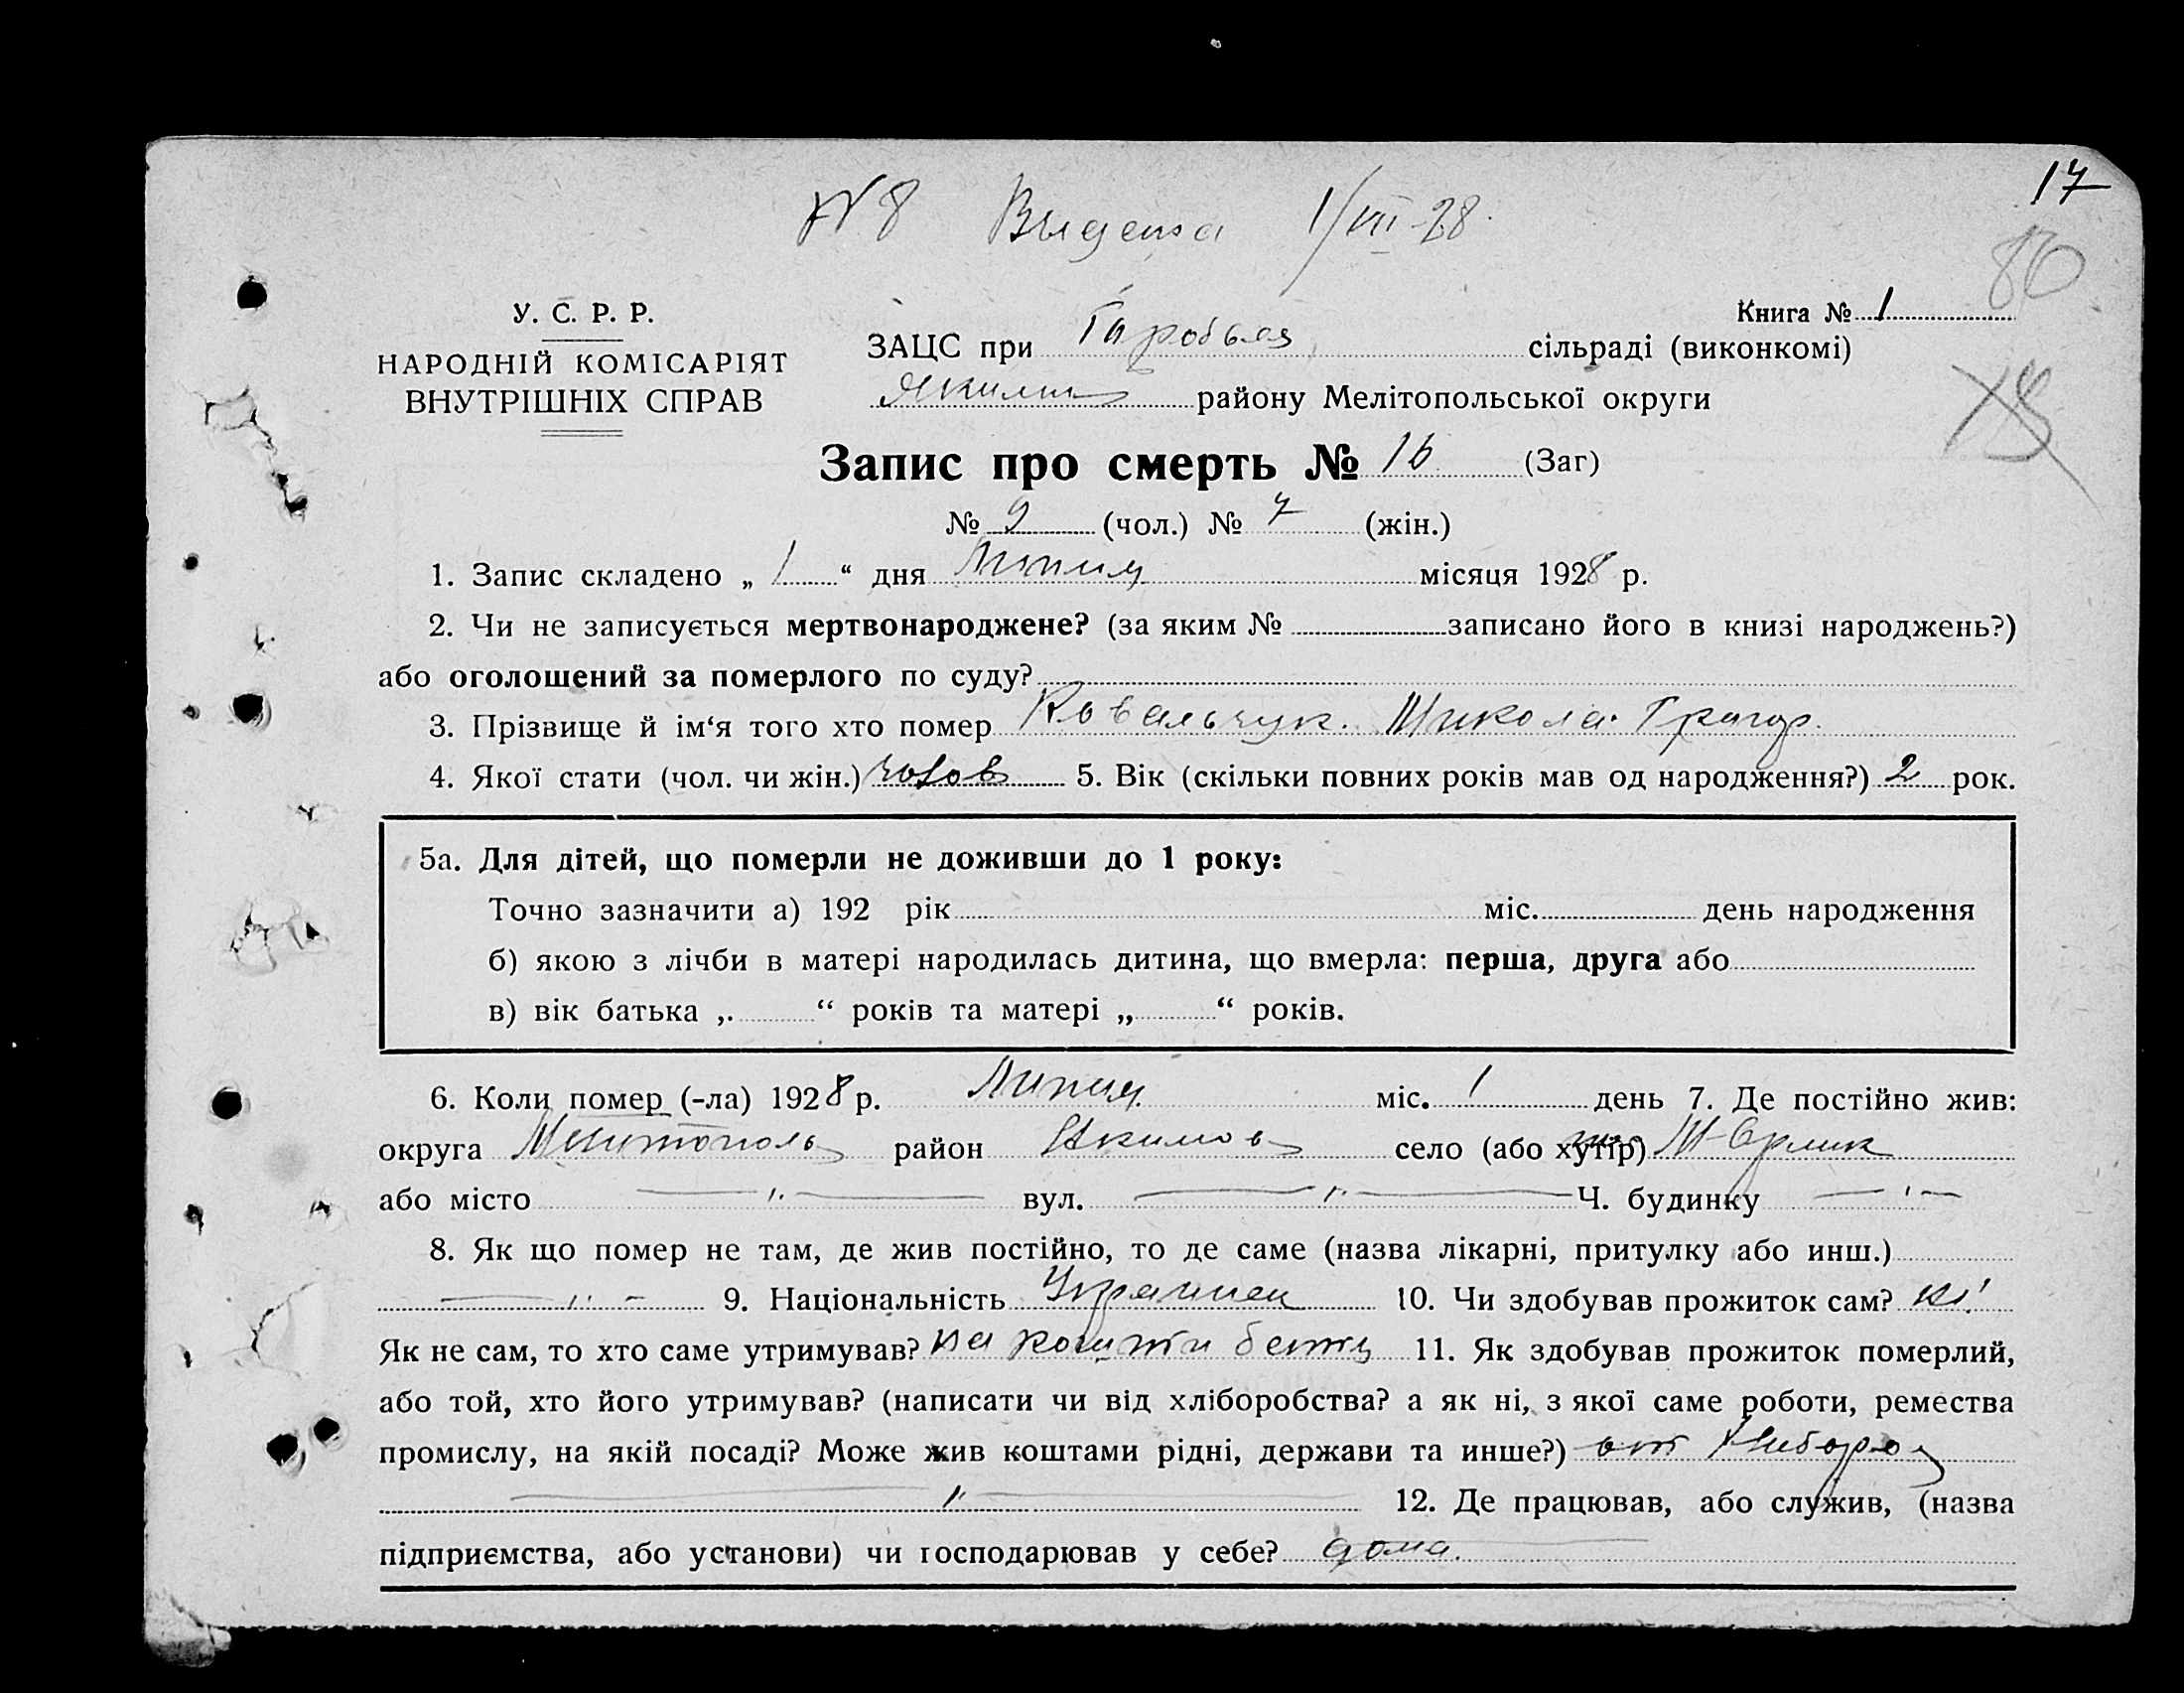 17
№ 8 Выдена 1/VII-28.
80
У. С. Р. Р.
НАРОДНІЙ КОМІСАРІЯТ
ВНУТРІШНІХ СПРАВ
Книга № 1
ЗАЦС при сільраді (виконкомі)
Якимів району Мелітопольської округи
Запис про смерть № 16 (Заг)
№ 9 (чол.) № 7 (жін.)
1. Запис складено „ 1 “ дня Липня місяця 1928 р.
2. Чи не записується мертвонароджене? (за яким № записано його в книзі народжень?)
або оголошений за померлого по суду?
3. Прізвище й ім‘я того хто помер Ковальчук. Микола Григор.
4. Якої стати (чол. чи жін.) чолов 5. Вік (скільки повних років мав од народження?) 2 рок.
5а. Для дітей, що померли не доживши до 1 року:
Точно зазначити а) 192 рік міс. день народження
б) якою з лічби в матері народилась дитина, що вмерла: перша, друга або
в) вік батька „ “ років та матері „ “ років.
6. Коли помер (-ла) 1928 р. Липня міс. 1 день 7. Де постійно жив:
округа Мелитополь район Якимов село (або хутір)
або місто —"— вул. —"— Ч. будинку —"—
8. Як що помер не там, де жив постійно, то де саме (назва лікарні, притулку або инш.)
—"— 9. Національність Украинец 10. Чи здобував прожиток сам? ні
Як не сам, то хто саме утримував? на кошти батц 11. Як здобував прожиток померлий,
або той, хто його утримував? (написати чи від хліборобства? а як ні, з якої саме роботи, ремества
промислу, на якій посаді? Може жив коштами рідні, держави та инше?) от хлибороб
—"— 12. Де працював, або служив, (назва
підприємства, або установи) чи господарював у себе? дома.